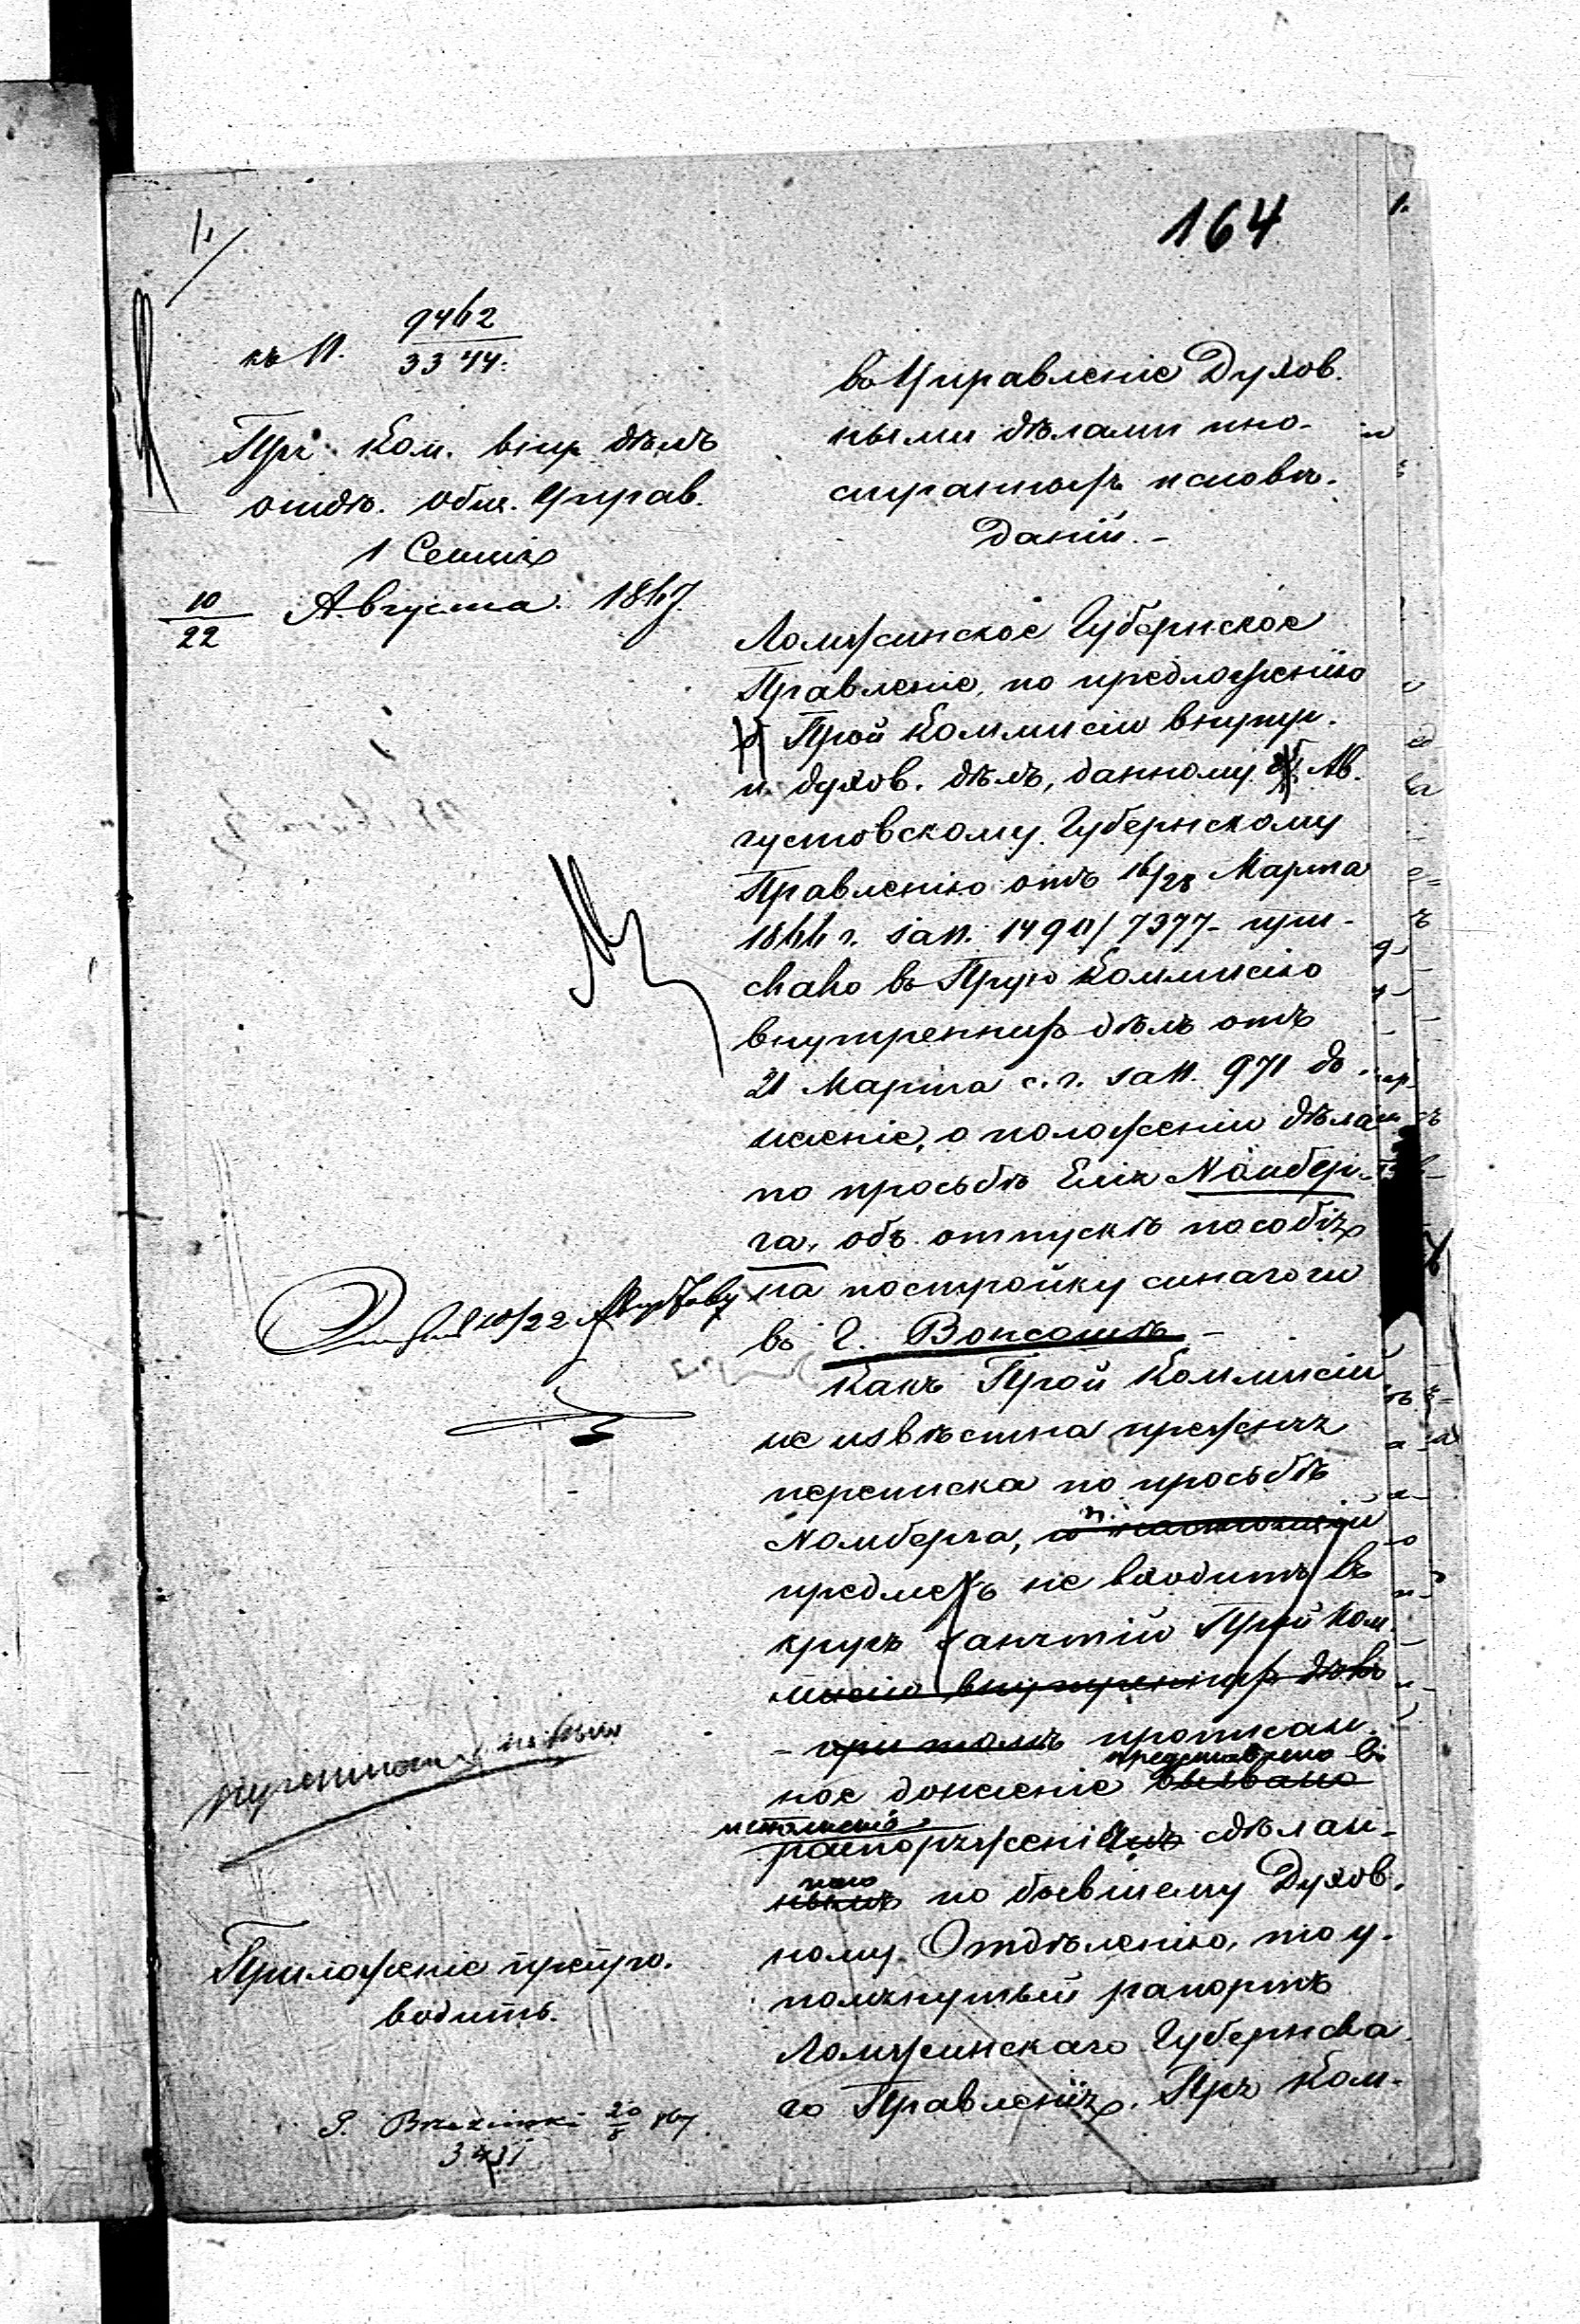 164
1.
къ N. 9462/3344.
Пр. Ком. внут. дѣлъ
отдѣ. общ. Управ.
1 Секція
10/22 Августа 1867.
въ Управленіе Духов.
ными дѣлами ино-
странныхъ исповѣ-
даній. -
Ломжинское Губернское
Правленіе, по предложенію
Прой Коммисіи внутр.
и духов. дѣлъ, данному Ав-
густовскому Губернскому
Правленію отъ 16/28 Марта
1866 г. за N. 1490/7377 при-
слало въ Прую Коммисію
внутреннихъ дѣлъ отъ
21 Марта с. г. за N. 971 до-
несеніе, о положеніи дѣла
по просьбѣ Еліи Номбер-
га, объ отпускѣ пособія
на постройку синагоги
въ г. Вонсошѣ -
Какъ Прой Коммисіи
не извѣстна прежняя
переписка по просьбѣ
Номберга, и настоящій
предметъ не входитъ въ
кругъ занятій Прой Ком-
мисіи внутреннихъ дѣлъ
- при томъ прописан-
представлено въ
ное донесеніе вызвано
исполненіе
распоряженія сдѣлан-
наго
нымъ по бывшему Духов-
ному Отдѣленію, то у-
помянутый рапортъ
Ломжинскаго Губернска-
го Правленія, Пр. Ком-
10/22
Приложеніе препро-
водить.
20/8 867